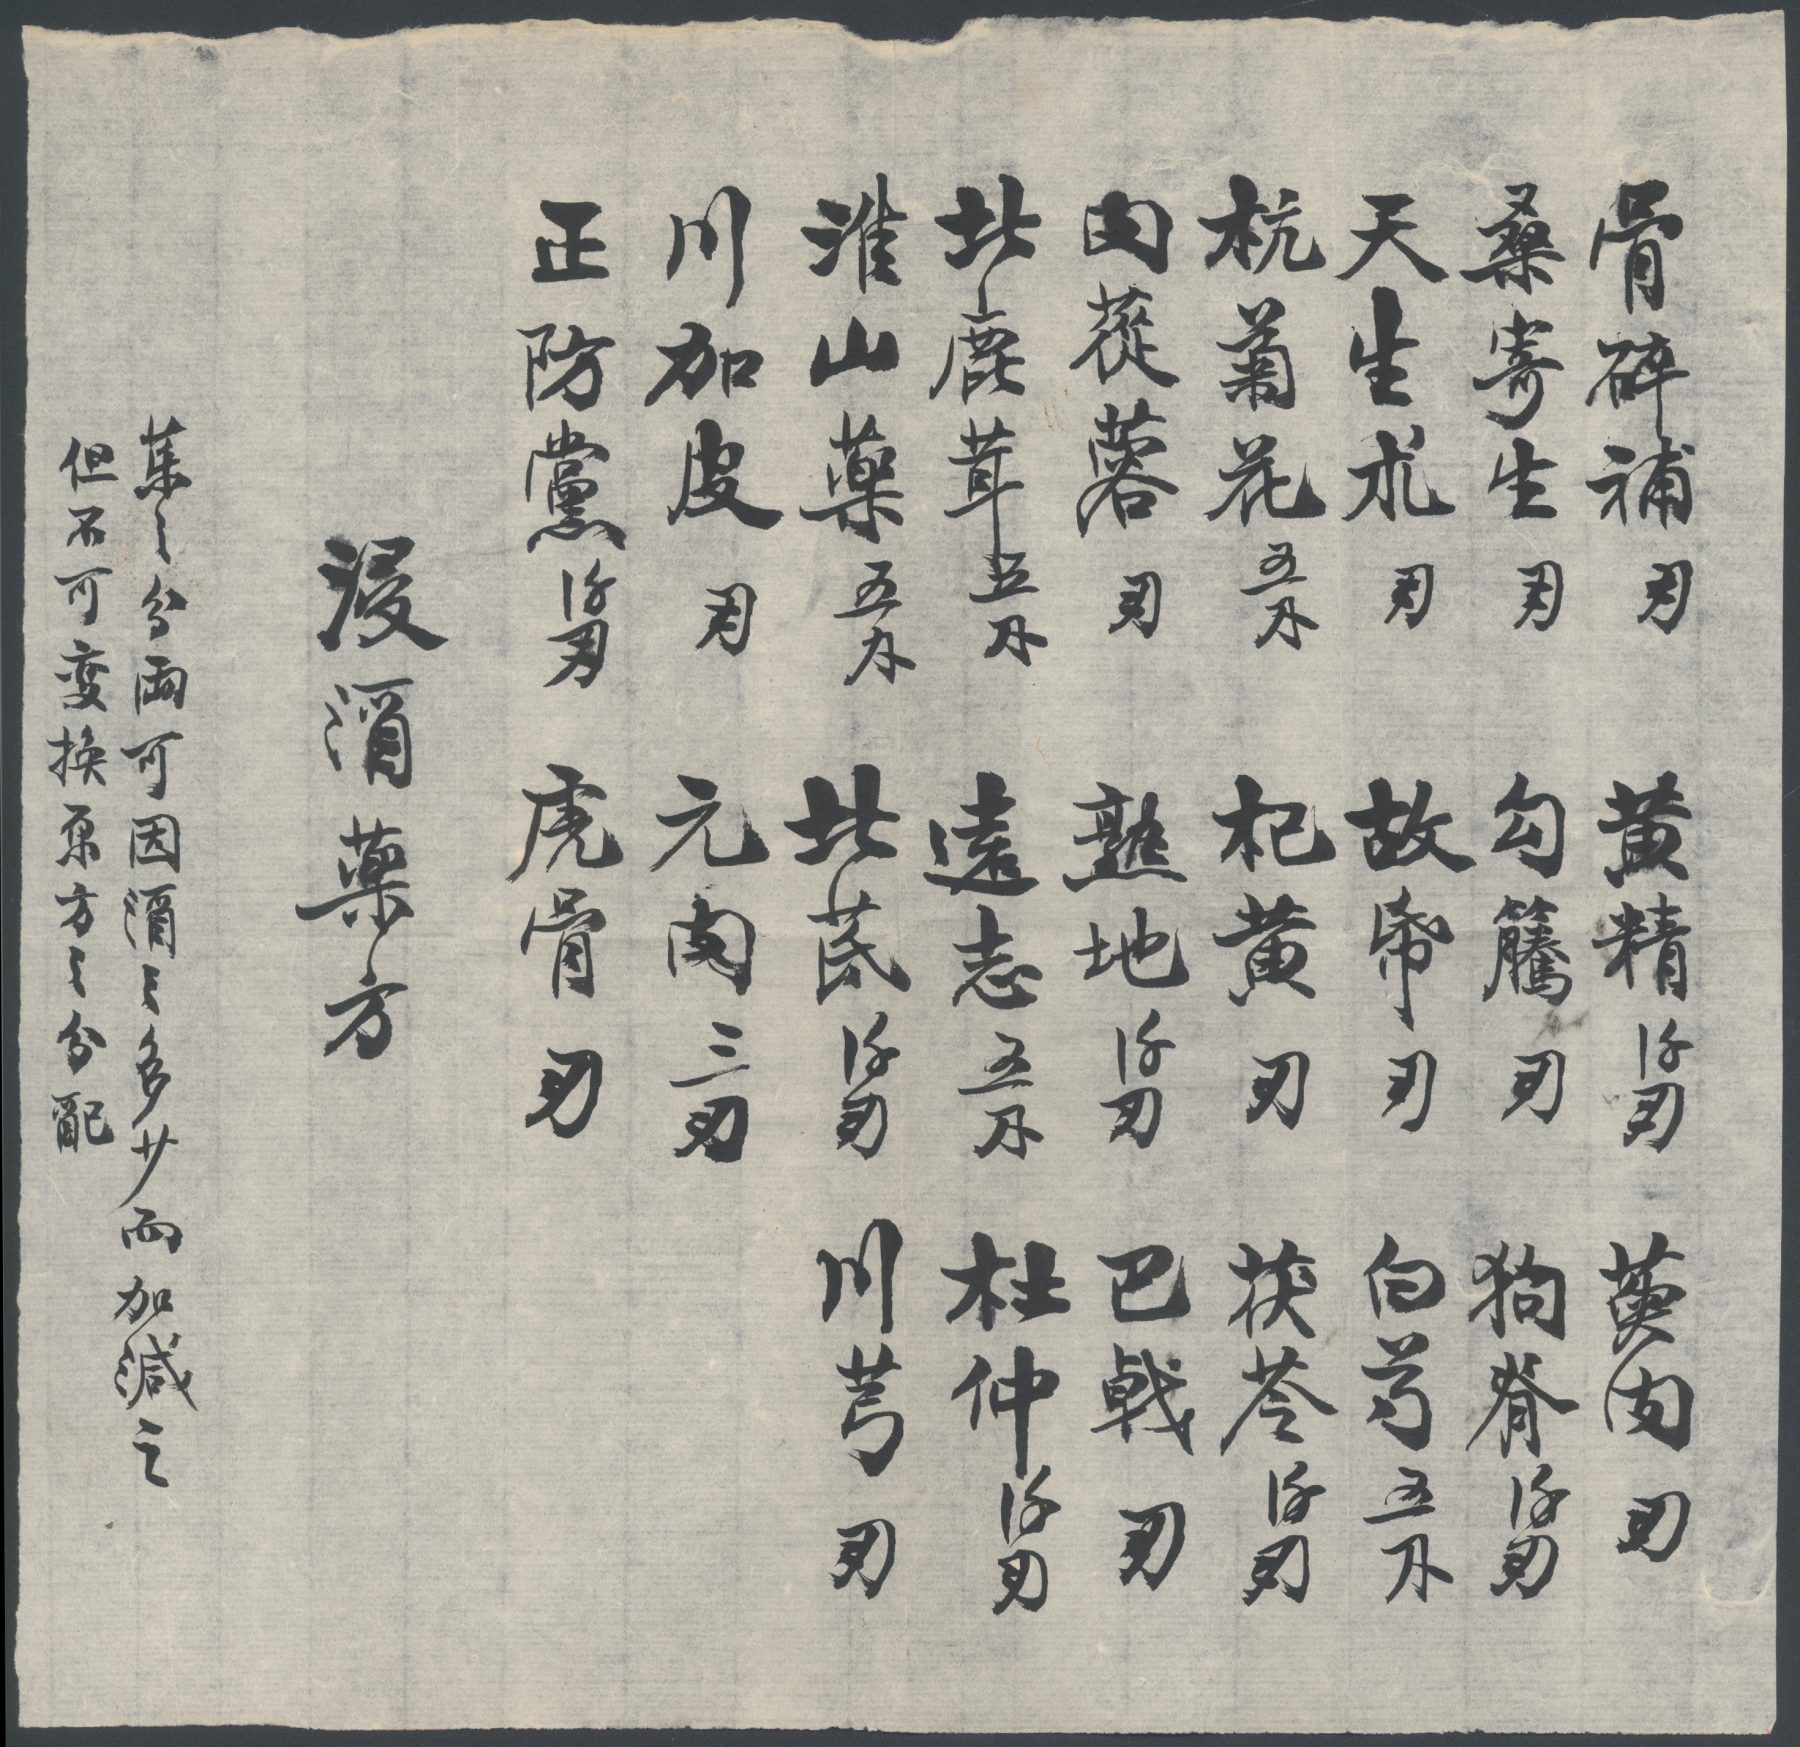 骨碎補刄　黄精𠆩刄　萸肉刄
桑寄生刄　勾籐刄　狗脊刄
天生朮刄　故帋刄　白芍五
杭菊花五　杞黄刄　茯苓刄
肉蓯蓉刄　熟地刄　巴戟刄
北鹿茸五　遠志五　杜仲刄
淮山藥五　北芪刄　川芎刄
川加皮刄　元肉三刄
正防黨刄　虎骨刄
浸酒藥方
藥之分兩可因酒之多少而加減之
但不可变换原方之分配